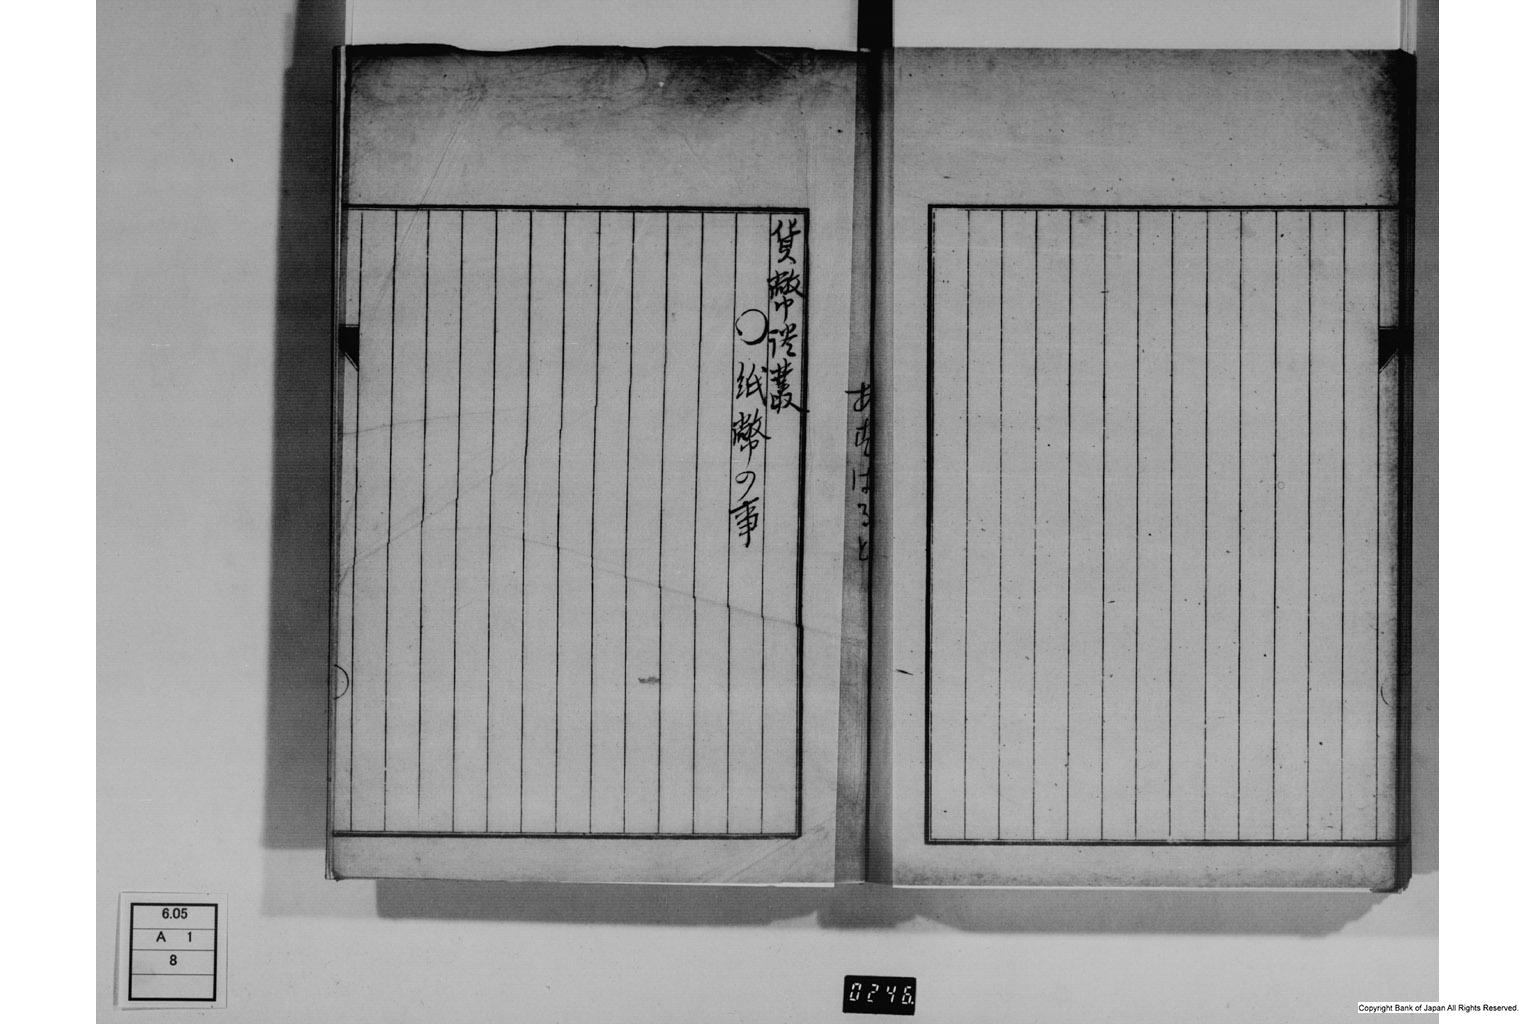 貨幣證叢
〇紙幣の事
6.05
A 1
8
0246.
Copyright Bank of Japan All Rights Reserved.